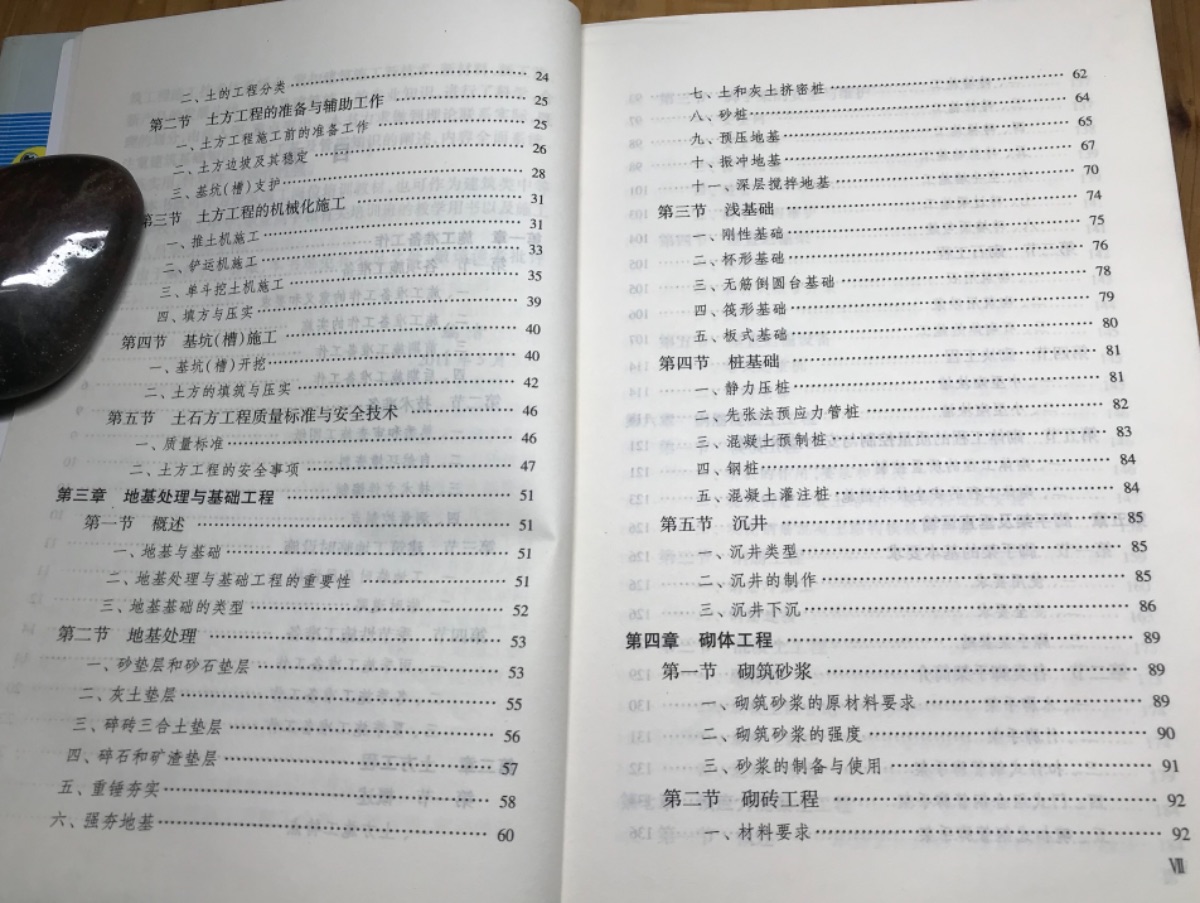 二、土的工程分类 24
第二节 土方工程的准备与辅助工作 25
一、土方工程施工前的准备工作 25
二、土方边坡及其稳定 26
三、基坑(槽)支护 28
第三节 土方工程的机械化施工 31
一、推土机施工 31
二、铲运机施工 33
三、单斗挖土机施工 35
四、填方与压实 39
第四节 基坑(槽)施工 40
一、基坑(槽)开挖 40
二、土方的填筑与压实 42
第五节 土石方工程质量标准与安全技术 46
一、质量标准 46
二、土方工程的安全事项 47
第三章 地基处理与基础工程 51
第一节 概述 51
一、地基与基础 51
二、地基处理与基础工程的重要性 51
三、地基基础的类型 52
第二节 地基处理 53
一、砂垫层和砂石垫层 53
二、灰土垫层 55
三、碎砖三合土垫层 56
四、碎石和矿渣垫层 57
五、重锤夯实 58
六、强夯地基 60
七、土和灰土挤密桩 62
八、砂桩 64
九、预压地基 65
十、振冲地基 67
十一、深层搅拌地基 70
第三节 浅基础 74
一、刚性基础 75
二、杯形基础 76
三、无筋倒圆台基础 78
四、筏形基础 79
五、板式基础 80
第四节 桩基础 81
一、静力压桩 81
二、先张法预应力管桩 82
三、混凝土预制桩 83
四、钢桩 84
五、混凝土灌注桩 84
第五节 沉井 85
一、沉井类型 85
二、沉井的制作 85
三、沉井下沉 86
第四章 砌体工程 89
第一节 砌筑砂浆 89
一、砌筑砂浆的原材料要求 89
二、砌筑砂浆的强度 90
三、砂浆的制备与使用 91
第二节 砌砖工程 92
一、材料要求 92
Ⅶ